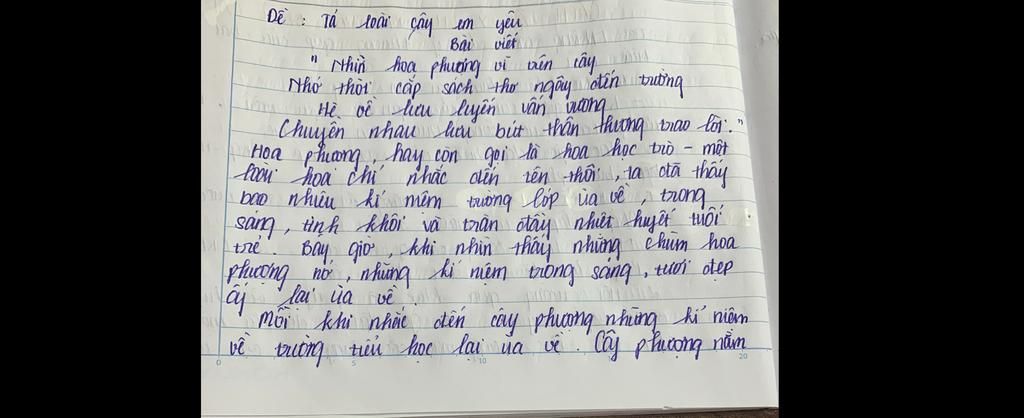 Đề : Tả loài cây em yêu
Bài viết
" Nhìn hoa phượng vĩ trên cây
Nhớ thời cắp sách thơ ngây đến trường
Hè về lưu luyến vấn vương
Chuyền nhau lưu bút thân thương trao lời."
Hoa phượng, hay còn gọi là hoa học trò - một
loài hoa chỉ nhắc đến tên thôi, ta đã thấy
bao nhiêu kỉ niệm trường lớp ùa về, trong
sáng, tinh khôi và tràn đầy nhiệt huyết tuổi
trẻ. Bây giờ, khi nhìn thấy những chùm hoa
phượng nở, những kỉ niệm trong sáng, tươi đẹp
ấy lại ùa về.
Mỗi khi nhắc đến cây phượng những kỉ niệm
về trường tiểu học lại ùa về. Cây phượng nằm
0 5 10 20